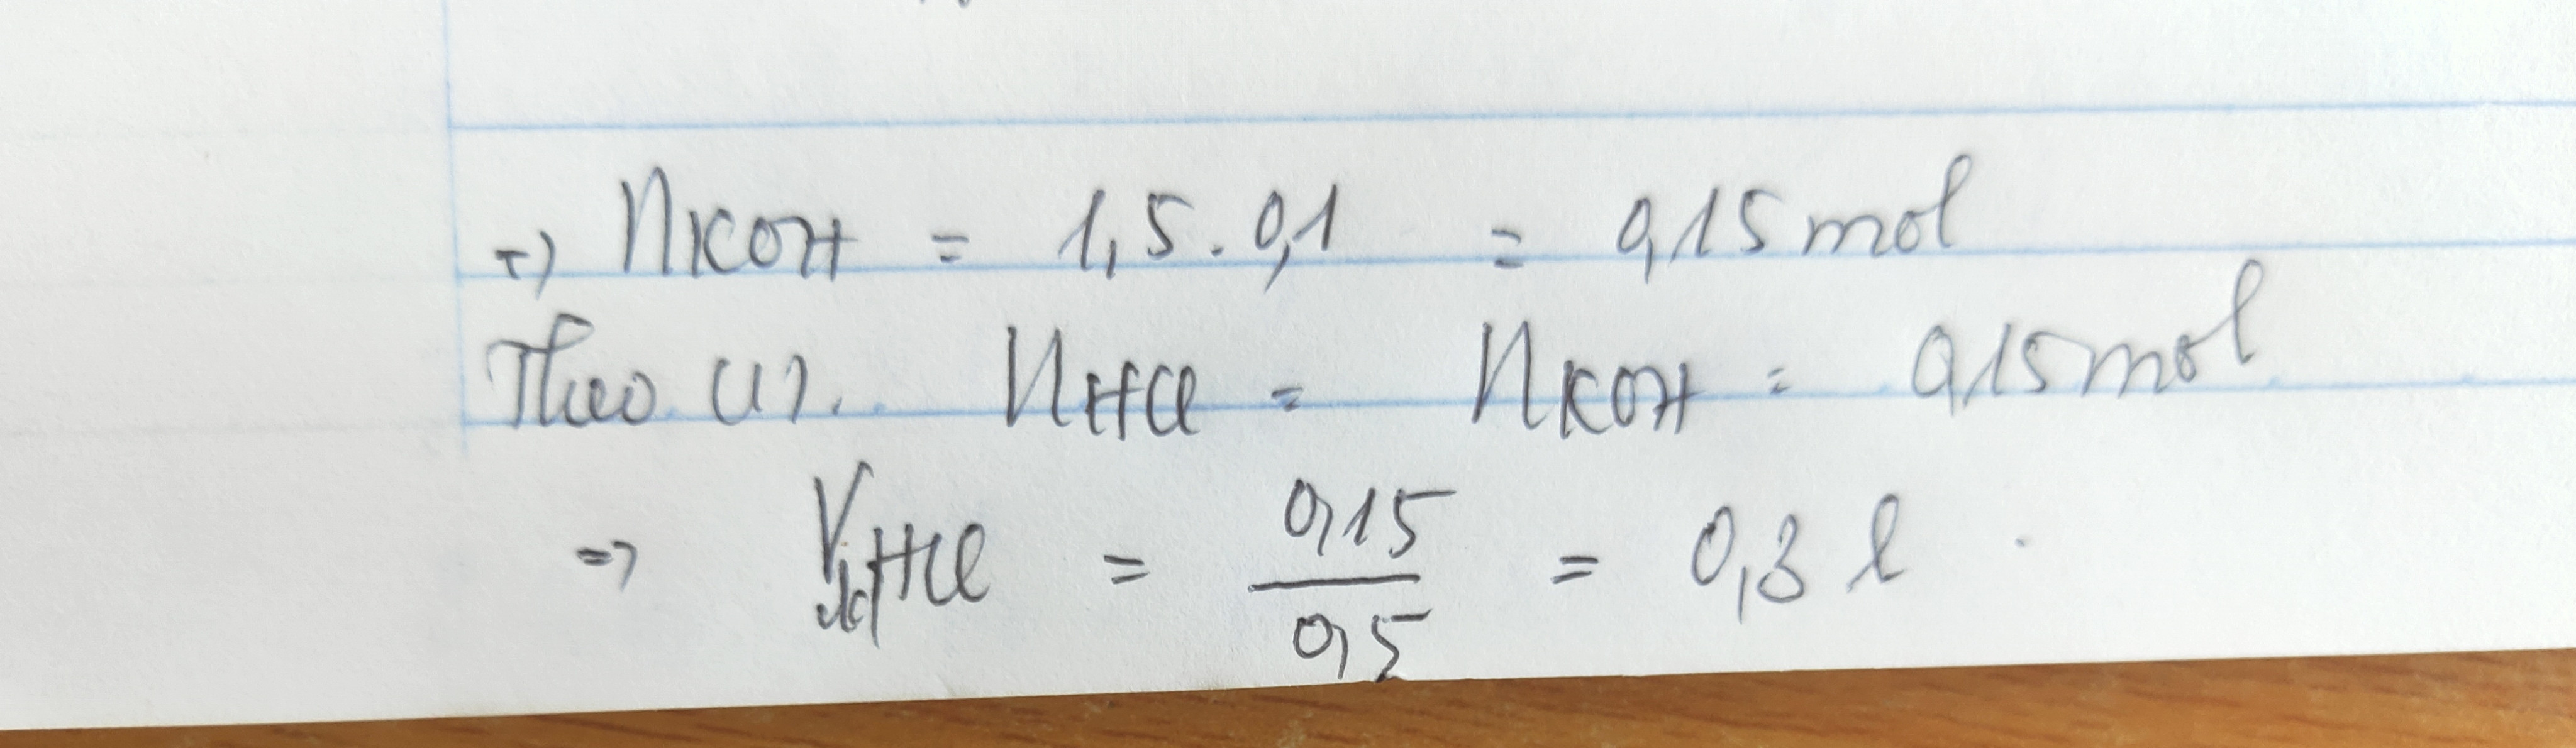 => nKOH = 1,5 . 0,1 = 0,15 mol
Theo (1). nHCl = nKOH = 0,15 mol
=> VddHCl = 0,15 / 0,5 = 0,3 l